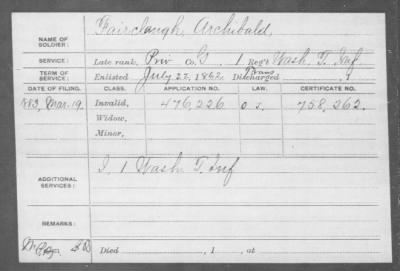 NAME OF SOLDIER: Fairclough, Archibald,
SERVICE: Late rank, Priv Co. G 1 Reg't Wash. T. Inf
TERM OF SERVICE: Enlisted July 22, 1862 Discharged Trans , 1
DATE OF FILING. CLASS. APPLICATION NO. LAW. CERTIFICATE NO.
1883, Mar. 19. Invalid, 476,226 O S. 758,262.
Widow,
Minor,
ADDITIONAL SERVICES: I. 1 Wash T. Inf
REMARKS:
Died , 1 , at